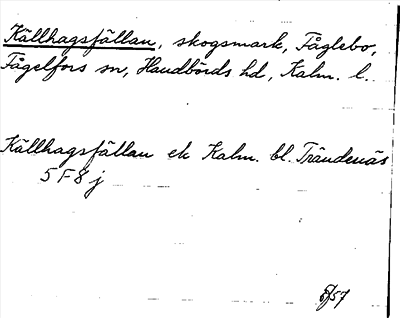 Källhagsfällan, skogsmark, Fåglebo,
Fågelfors sn, Handbörds hd, Kalm. l.
Källhagsfällan ek Kalm. bl. Trändenäs
5 F 8 j
57